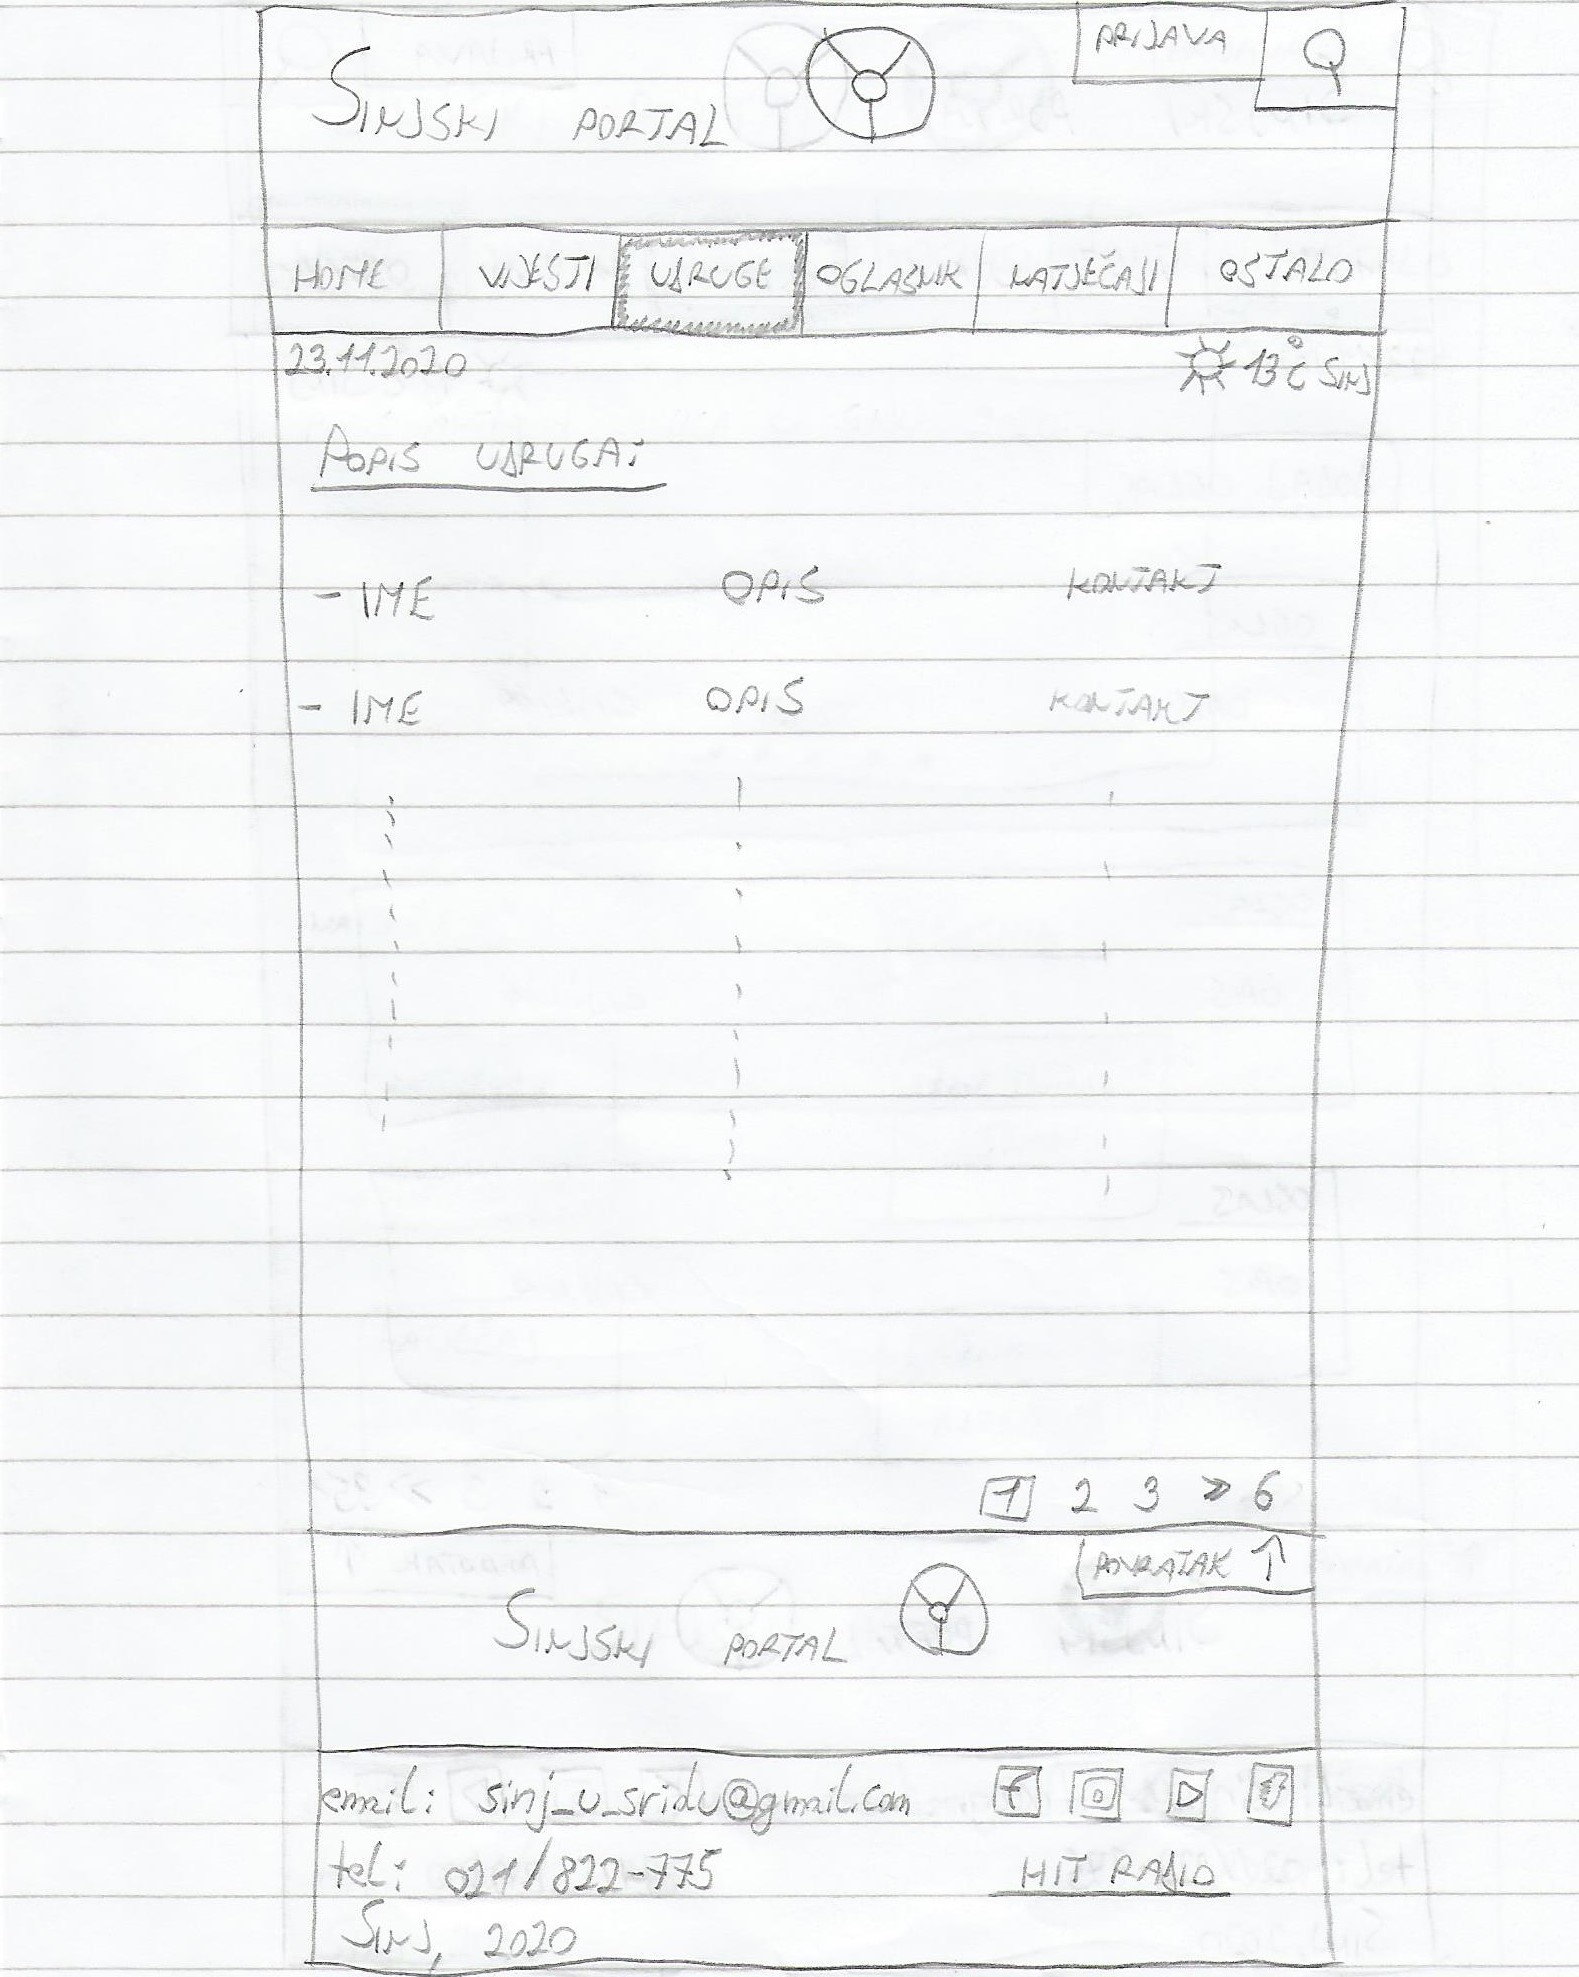 PRIJAVA
SINJSKI PORTAL
HOME VIJESTI UDRUGE OGLASNIK NATJEČAJI OSTALO
23.11.2020 13°C SINJ
POPIS UDRUGA:
- IME OPIS KONTAKT
- IME OPIS KONTAKT
1 2 3 >> 6
POVRATAK ↑
SINJSKI PORTAL
email: sinj_u_sridu@gmail.com
tel: 021/822-775 HIT RADIO
SINJ, 2020